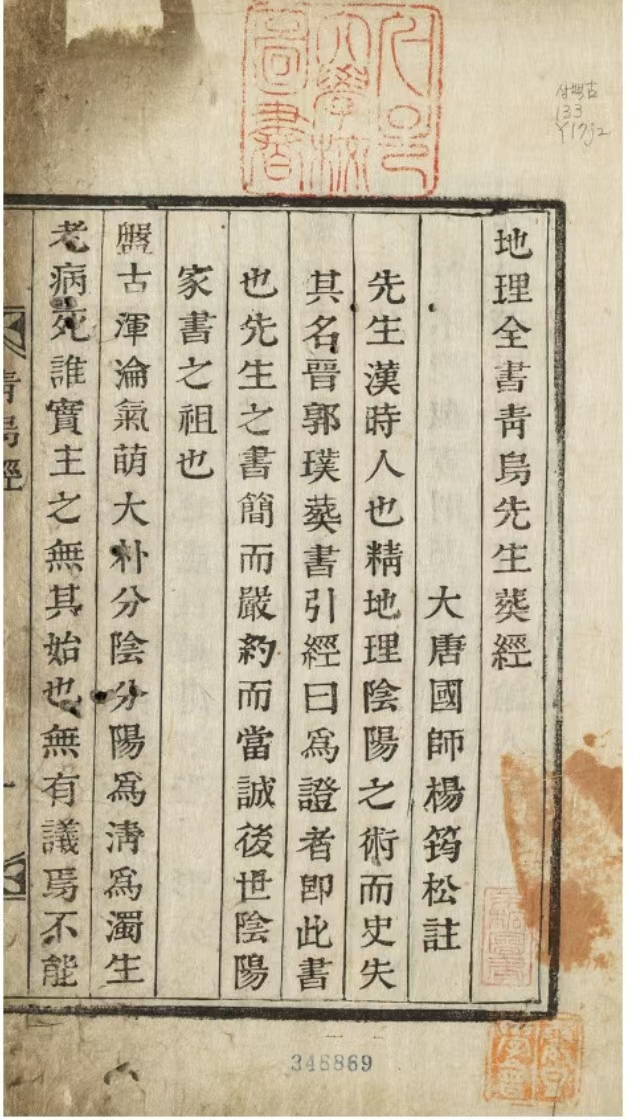 大學校
圖書
133
地理全書靑烏先生葬經
大唐國師楊筠松註
先生漢時人也精地理陰陽之術而史失
其名晉郭璞葬書引經曰爲證者卽此書
也先生之書簡而嚴約而當誠後世陰陽
家書之祖也
盤古渾淪氣萌大朴分陰分陽爲淸爲濁生
老病死誰實主之無其始也無有議焉不能
靑烏經 一
346869